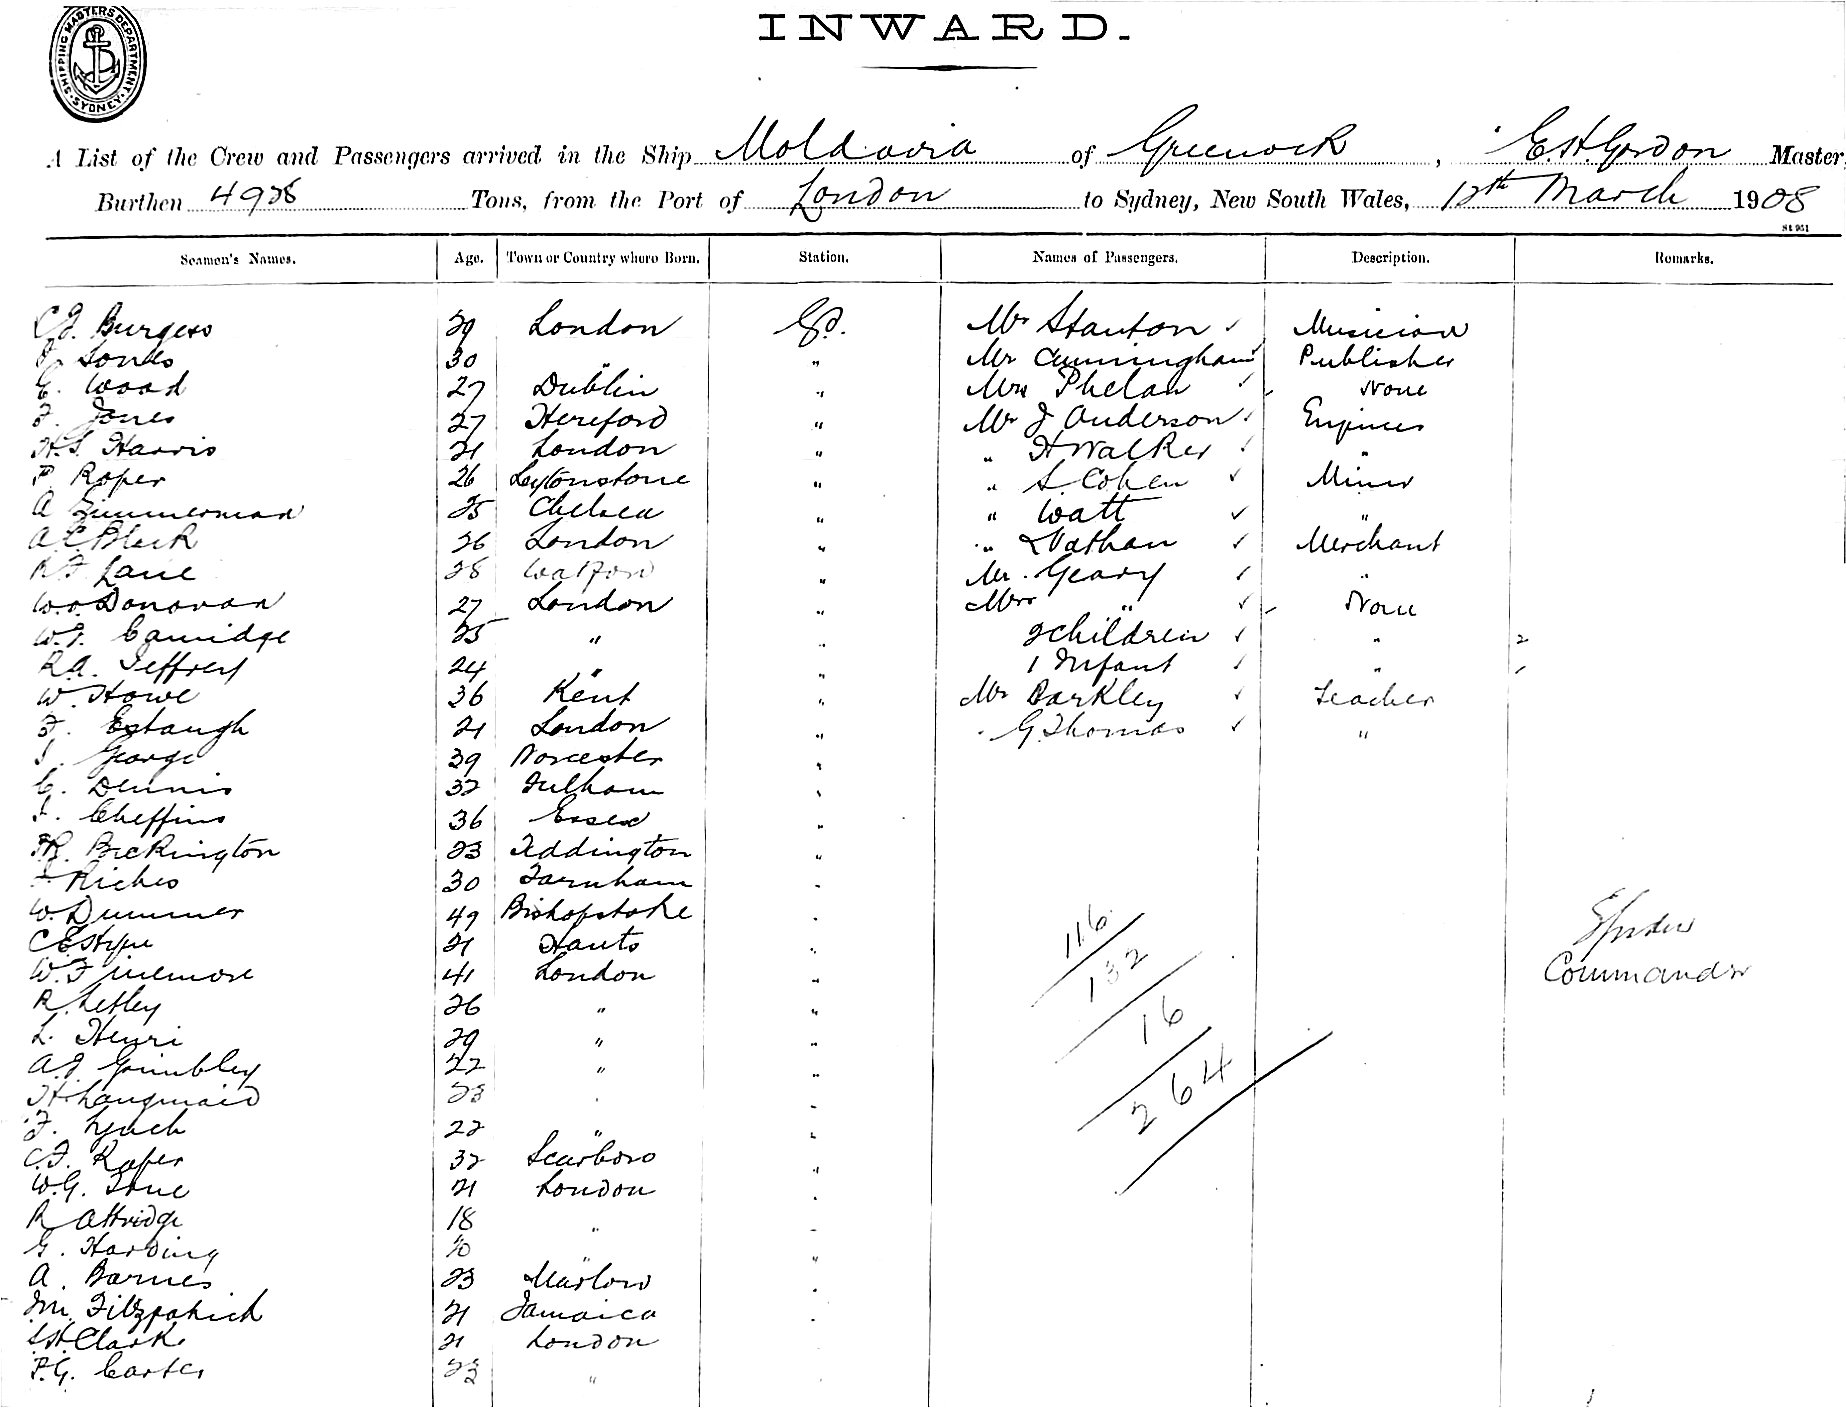 SHIPPING MASTERS DEPARTMENT. SYDNEY
INWARD.
A List of the Crew and Passengers arrived in the Ship Moldavia of Greenock, E.H. Gordon Master,
Burthen 4928 Tons, from the Port of London to Sydney, New South Wales, 12th March 1908
St 951
Seamen's Names. Age. Town or Country where Born. Station. Names of Passengers. Description. Remarks.
Burgess 29 London Mr Stanton ✓ Musician
30 " " Mr Cunningham ✓ Publisher
E. Wood 27 Dublin " Mrs Phelan ✓ None
F. Jones 27 Hereford " Mr J Anderson ✓ Engineer
H.S. Harris 21 London " " H Walker ✓ "
P. Roper 26 Leytonstone " " S. Cohen ✓ Miner
A Zimmerman 25 Chelsea " " Watt ✓ "
A.C. Black 26 London " " Nathan ✓ Merchant
R F Lane 28 Watford " Mr. Geary ✓ "
W. O Donovan 27 London " Mrs " ✓ None
W.F. 25 " " 2 Children ✓ " 2
R.A. Jeffrey 24 " " 1 Infant ✓ " 1
W. Howe 36 Kent " Mr Barkley ✓ Teacher
F. Estaugh 21 London " " G. Thomas ✓ "
George 39 Worcester "
C. Dennis 32 Fulham "
Cheffins 36 Essex "
Bickington 23 Teddington "
Riches 30 Farnham "
W. Dummer 49 Bishopstoke "
C.E. Hype 21 Hants "
W. Finemore 41 London "
R. Letley 26 " "
L. Henri 29 " "
A.J. Grimbley 22 " "
H. Langmaid 23 " "
F. Lynch 22 " "
C.F. Roper 32 Scarboro "
W.G. True 21 London "
R Attridge 18 " "
G. Harding " "
A. Barnes 23 Marlow "
Fitzpatrick 21 Jamaica "
Clark 21 London
P.G. Carter 23 "
116
132
16
264
Commander